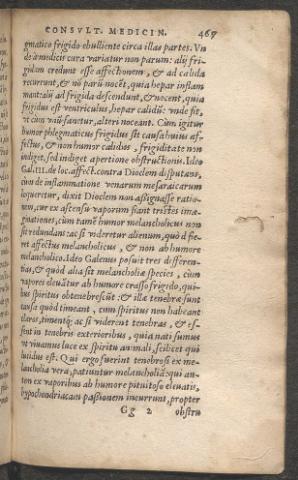 CONSVLT. MEDICIN. 467
gmatico frigido ebulliente circa illas partes. Vn
de à medicis cura variatur non parum: alij fri-
gidam credunt esse affectionem, & ad calida
recurrunt, & nō parū nocēt, quia hepar inflam
mant: alij ad frigida descendunt, & nocent, quia
frigidus est ventriculus, hepar calidū: vnde fit,
vt cùm vni faueatur, alteri noceant. Cùm igitur
humor phlegmaticus frigidus sit causa huius af-
fectus, & non humor calidus, frigiditate non
indiget, sed indiget apertione obstructionis. Ideo
Gal. III. de loc. affect. contra Dioclem disputans,
cùm de inflammatione venarum mesaraicarum
loqueretur, dixit Dioclem non assignasse ratio-
nem, cur ex ascensu vaporum fiant tristes imæ-
ginationes, cùm tamē humor melancholicus non
sit redundans: ac si videretur alienum, quòd fie-
ret affectus melancholicus, & non ab humore
melancholico. Ideo Galenus posuit tres differen-
tias, & quòd alia sit melancholiæ species, cùm
vapores eleuātur ab humore crasso frigido, qui-
bus spiritus obtenebrescūt: & illæ tenebræ sunt
causa quòd timeant, cum spiritus non habeant
claros, timentq; ac si viderent tenebras, & es-
sent in tenebris exterioribus, quia nati sumus
vt viuamus luce ex spiritu animali, scilicet qui
lucidus est. Qui ergo fuerint tenebrosi ex me-
lancholia vera, patiuntur melancholiā: qui au-
tem ex vaporibus ab humore pituitoso eleuatis,
hypochondriacam passionem incurrunt, propter
Gg 2 obstru